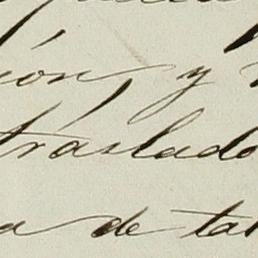 ión, y
traslado
a de tal